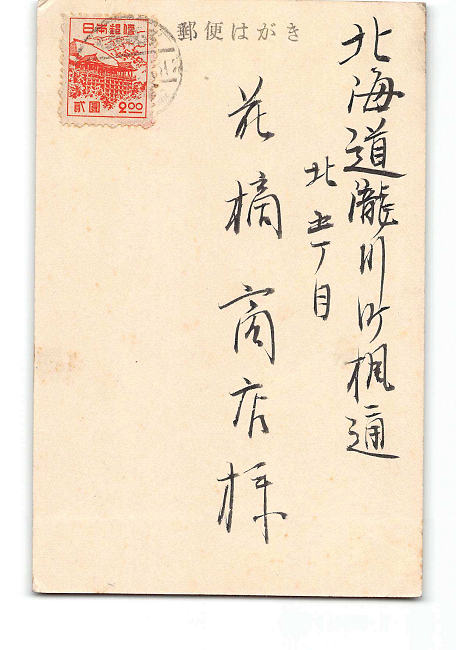 郵便はがき
日本郵便
貳圓
2.00
北海道瀧川町楓通
北五丁目
花橘商店様